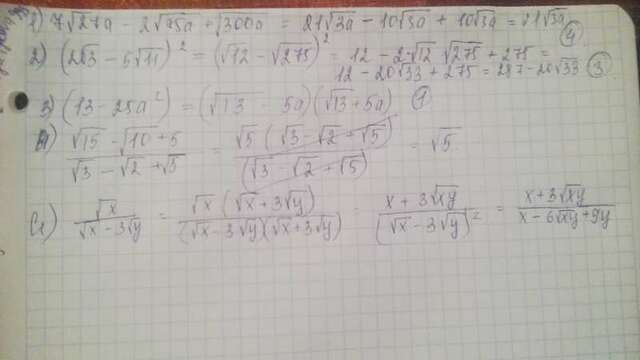 1) 7√27a - 2√75a + √300a = 21√3a - 10√3a + 10√3a = 21√3a (4)
2) (2√3 - 5√11)² = (√12 - √275)² = 12 - 2·√12 √275 + 275 =
12 - 20√33 + 275 = 287 - 20√33 (3)
3) (13 - 25a²) = (√13 - 5a)(√13 + 5a) (1)
4) (√15 - √10 + 5)/(√3 - √2 + √5) = √5(√3 - √2 + √5)/(√3 - √2 + √5) = √5
C1) √x/(√x - 3√y) = √x(√x + 3√y)/(√x - 3√y)(√x + 3√y) = (x + 3√xy)/(√x - 3√y)² = (x + 3√xy)/(x - 6√xy + 9y)